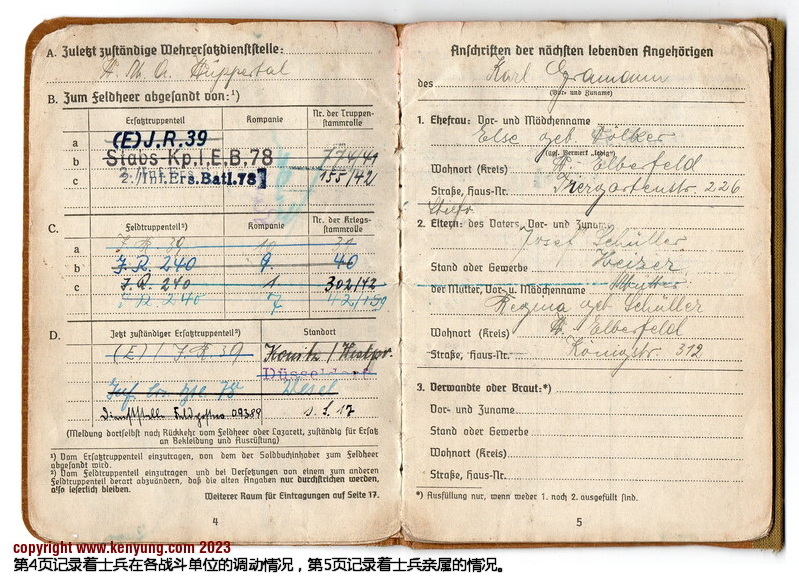 A. Zuletzt zuständige Wehrersatzdienststelle:
B. Zum Feldheer abgesandt von:¹)
Ersatztruppenteil Kompanie Nr. der Truppenstammrolle
a (E) J.R. 39
b Stabs-Kp.I.E.B. 78 774/41
c 2./Inf.Ers.Batl.78 155/42
C. Feldtruppenteil²) Kompanie Nr. der Kriegsstammrolle
a J.R. 39
b J.R. 240 9. 40
c J.R. 240 1. 302/42
7
D. Jetzt zuständiger Ersatztruppenteil²) Standort
(E) / J.R. 39 Konitz / Westpr.
Düsseldorf
Wesel
Dienststelle Feldpostnr 09389 s. S. 17
(Meldung dortselbst nach Rückkehr vom Feldheer oder Lazarett, zuständig für Ersatz
an Bekleidung und Ausrüstung)
¹) Vom Ersatztruppenteil einzutragen, von dem der Soldbuchinhaber zum Feldheer
abgesandt wird.
²) Vom Feldtruppenteil einzutragen und bei Versetzungen von einem zum anderen
Feldtruppenteil derart abzuändern, daß die alten Angaben nur durchstrichen werden,
also leserlich bleiben.
Weiterer Raum für Eintragungen auf Seite 17.
4
Anschriften der nächsten lebenden Angehörigen
des Karl Gramann
(Vor- und Zuname)
1. Ehefrau: Vor- und Mädchenname
Else geb. Völker
(ggf. Vermerk „ledig")
Wohnort (Kreis) W. Elberfeld
Straße, Haus-Nr. Tiergartenstr 226
2. Eltern: des Vaters, Vor- und Zuname
Josef Schüller
Stand oder Gewerbe Heizer
der Mutter, Vor- u. Mädchenname
Regina geb Schüller
Wohnort (Kreis) W. Elberfeld
Straße, Haus-Nr. Königstr. 312
3. Verwandte oder Braut:*)
Vor- und Zuname
Stand oder Gewerbe
Wohnort (Kreis)
Straße, Haus-Nr.
*) Ausfüllung nur, wenn weder 1. noch 2. ausgefüllt sind.
5
copyright www.kenyung.com 2023
第4页记录着士兵在各战斗单位的调动情况，第5页记录着士兵亲属的情况。